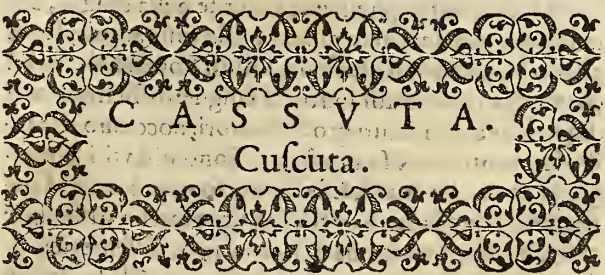 CASSVTA.
Cuſcuta.